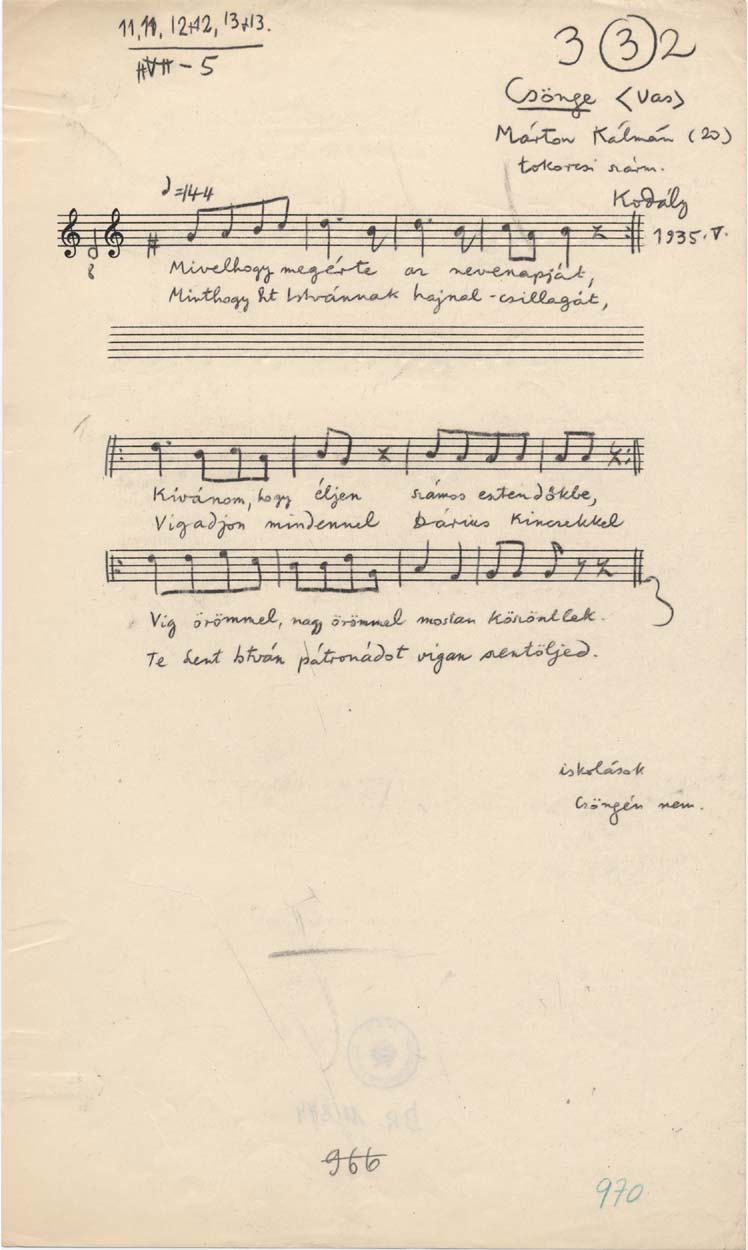 11, 11, 12+12, 13+13.
- 5
3 (3) 2
Csönge <Vas>
Márton Kálmán (20)
tokorcsi szárm.
Kodály
1935.V.
♩=144
8
Mivelhogy megérte az nevenapját,
Minthogy Szt Istvánnak hajnal-csillagát,
Kívánom, hogy éljen számos esztendőkbe,
Vigadjon mindennel Dárius kincsekkel
Víg örömmel, nagy örömmel mostan köszöntlek.
Te Szent István pátronádot vigan szentöljed.
iskolások
Csöngén nem.
966
970